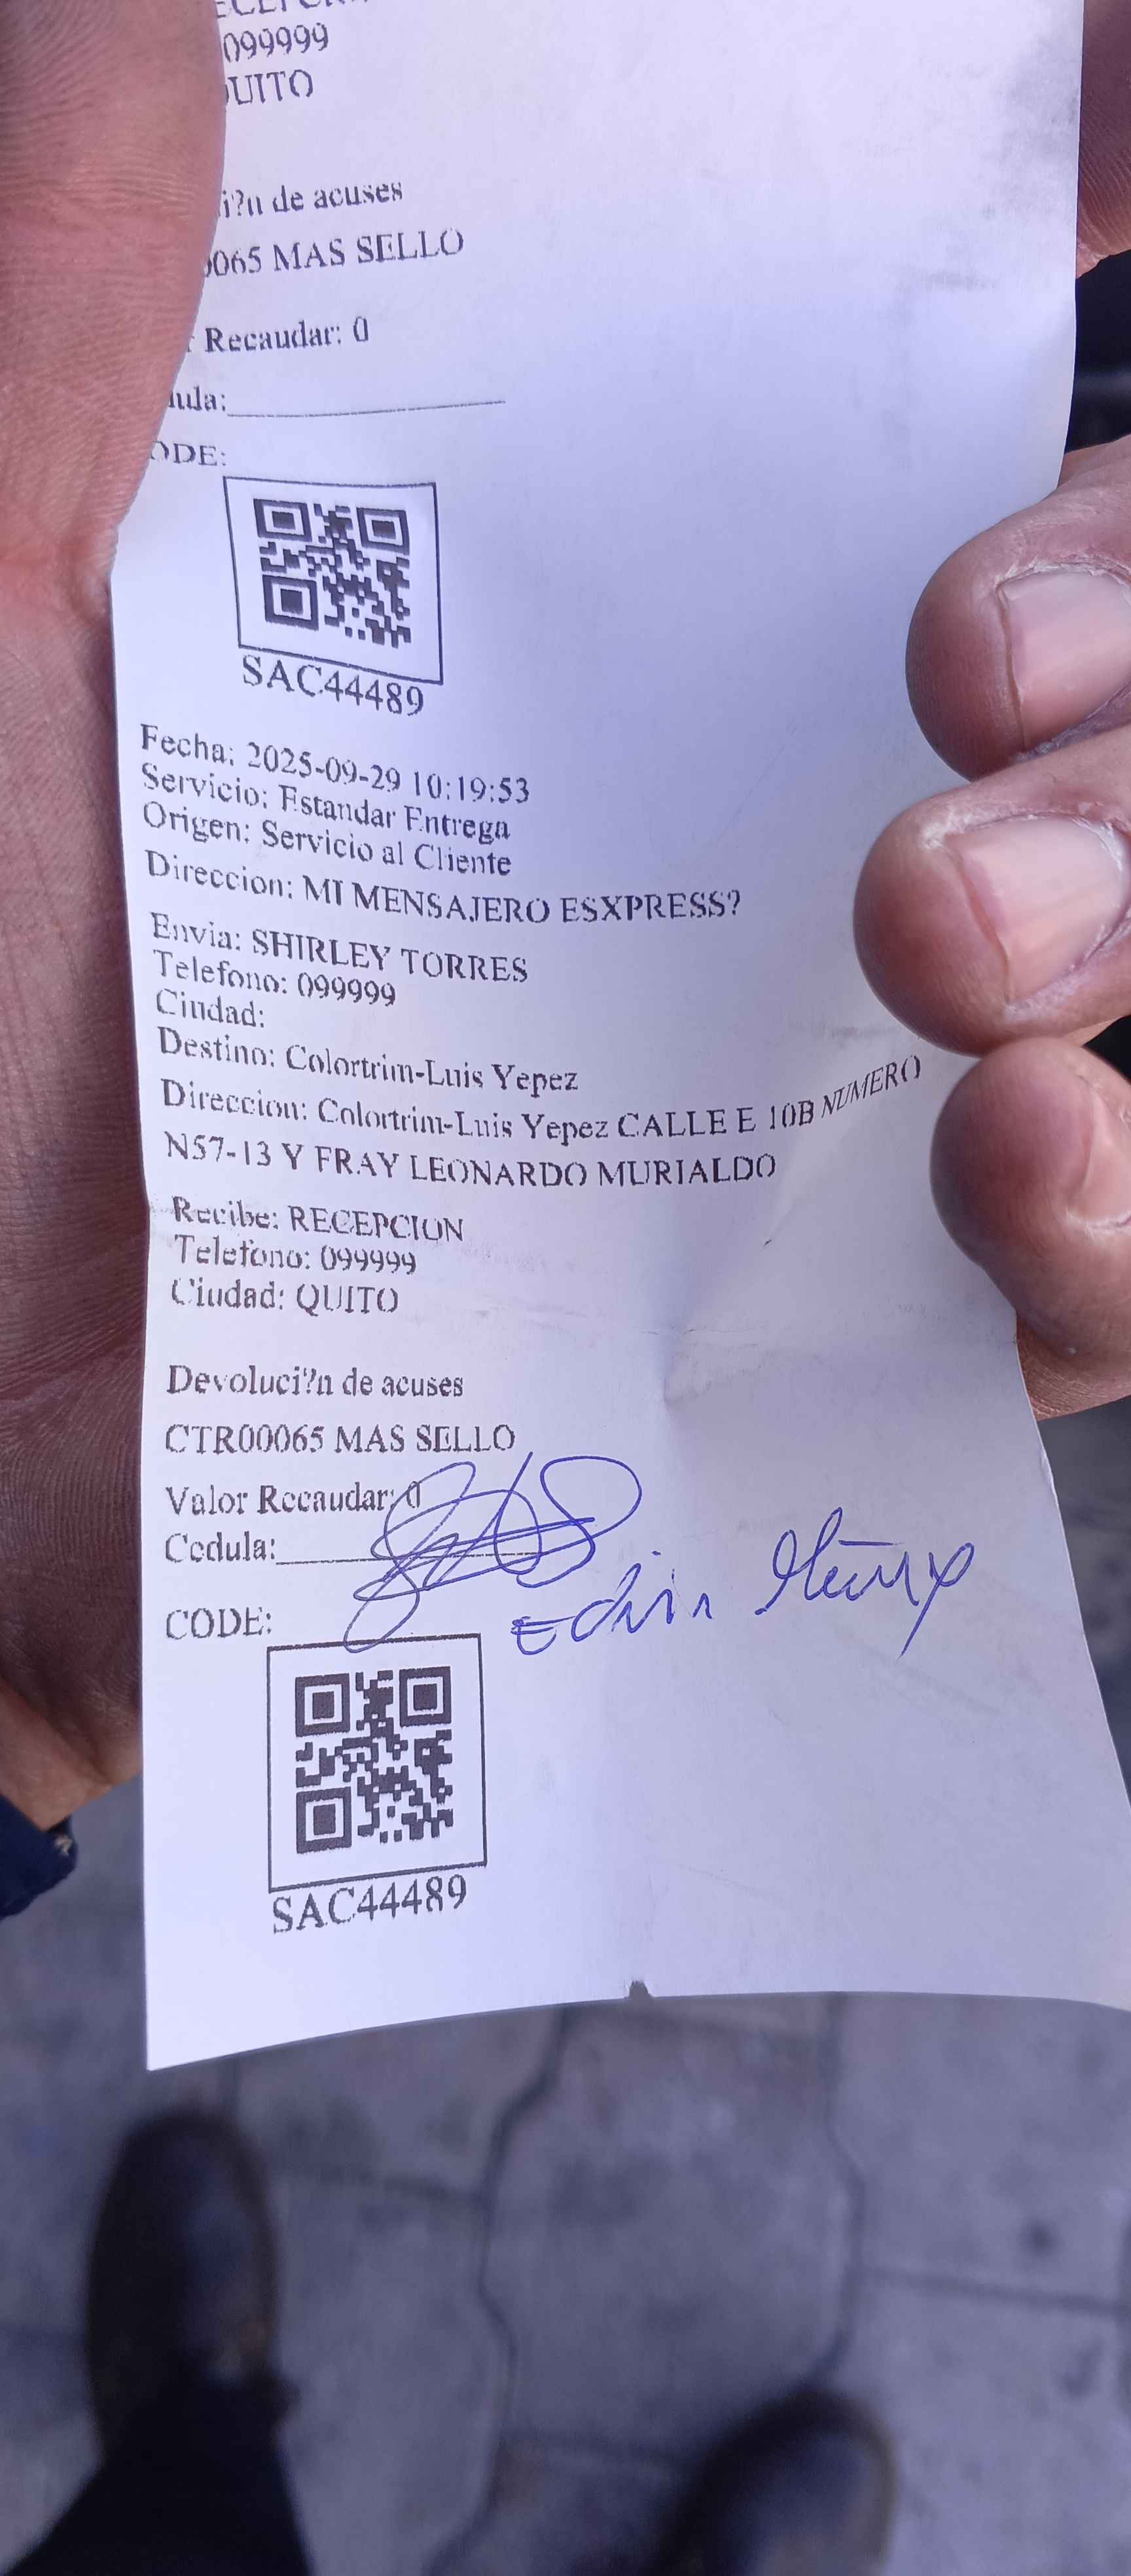 099999
UITO
i?n de acuses
0065 MAS SELLO
Recaudar: 0
ula:
ODE:
SAC44489
Fecha: 2025-09-29 10:19:53
Servicio: Estandar Entrega
Origen: Servicio al Cliente
Direccion: MI MENSAJERO ESXPRESS?
Envia: SHIRLEY TORRES
Telefono: 099999
Ciudad:
Destino: Colortrim-Luis Yepez
Direccion: Colortrim-Luis Yepez CALLE E 10B NUMERO
N57-13 Y FRAY LEONARDO MURIALDO
Recibe: RECEPCION
Telefono: 099999
Ciudad: QUITO
Devoluci?n de acuses
CTR00065 MAS SELLO
Valor Recaudar: 0
Cedula:
Edwin
CODE:
SAC44489